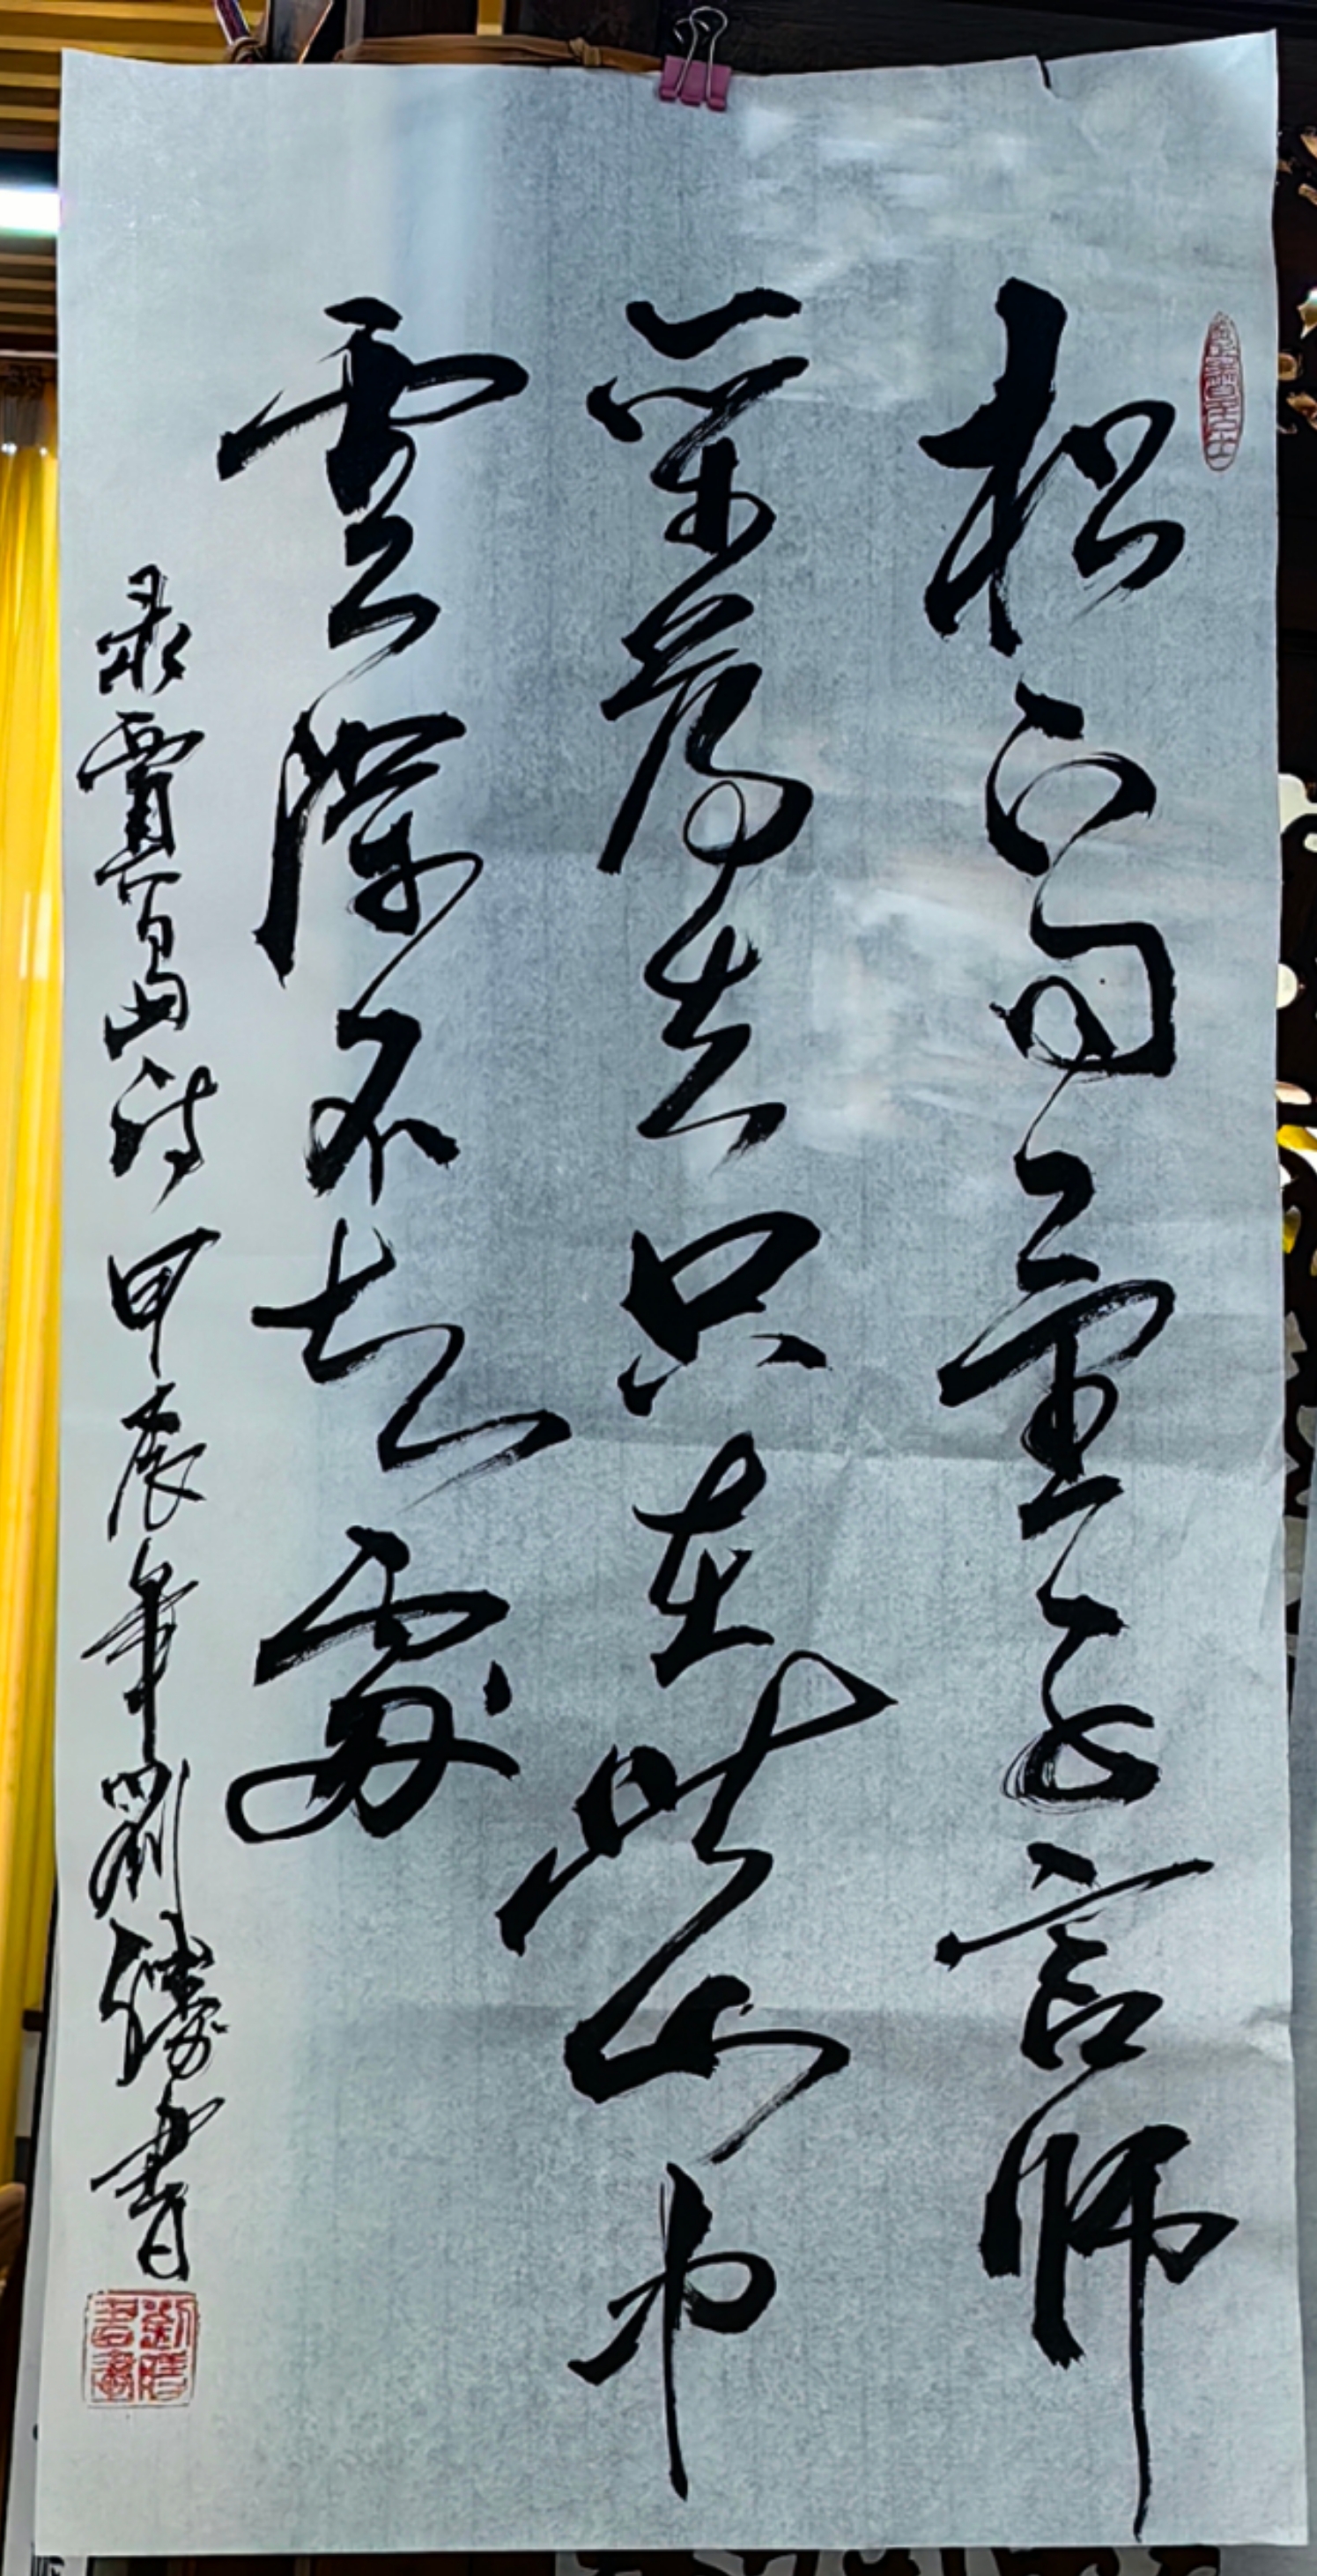 松下問童子言師
采藥去只在此山中
雲深不知處
录賈島詩 甲辰年劉勝書
劉勝書畫